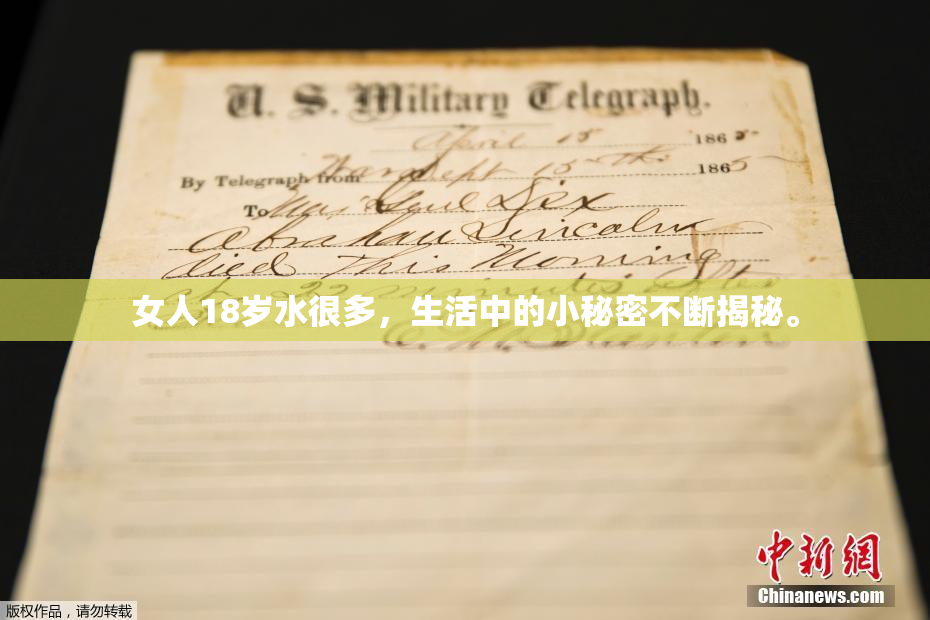 U. S. Military Telegraph.
April 15 1865
By Telegraph from War Dept 15th 1865
To Maj Genl Dix
Abraham Lincoln
died This Morning
at 22 minutes after
女人18岁水很多，生活中的小秘密不断揭秘。
E. M. Stanton
中新网
Chinanews.com
版权作品，请勿转载